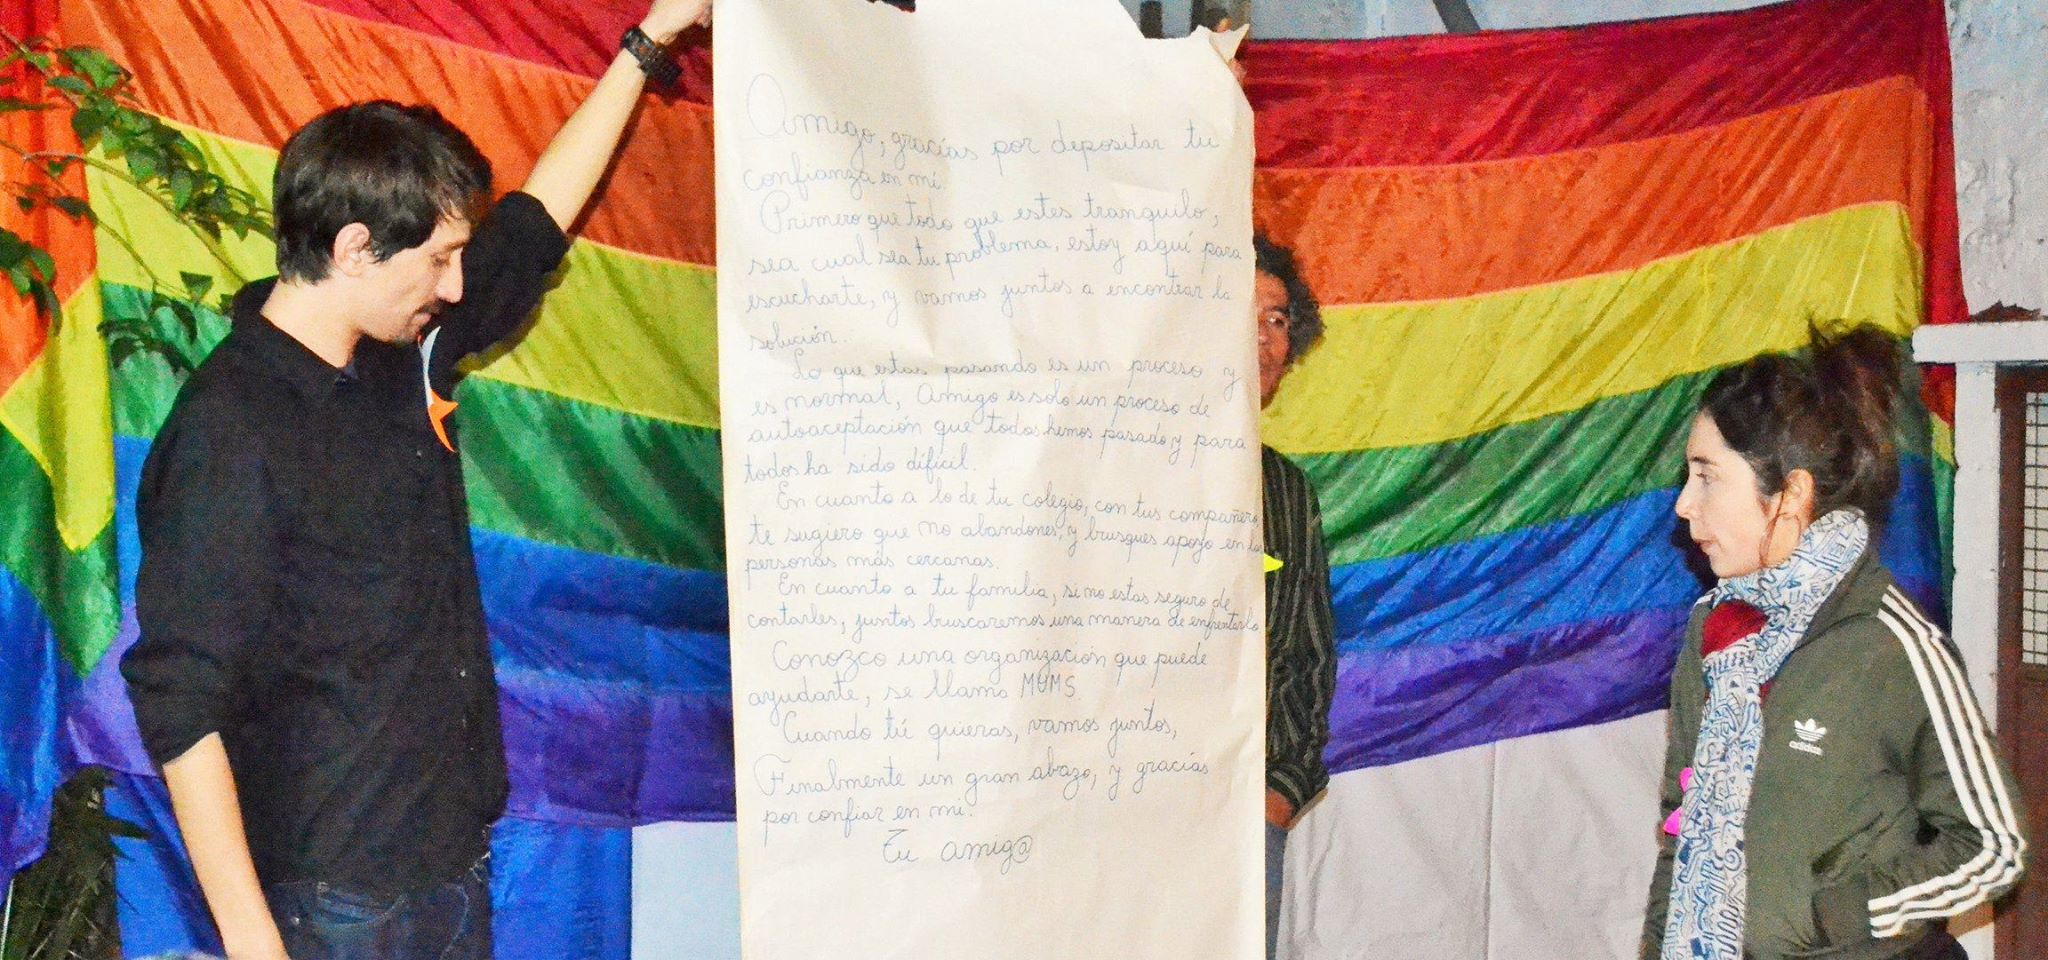 Amigo, gracias por depositar tu
confianza en mí.
Primero que todo que estes tranquilo,
sea cual sea tu problema, estoy aquí para
escucharte, y vamos juntos a encontrar la
solución.
Lo que estas pasando es un proceso y
es normal, Amigo es solo un proceso de
autoaceptación que todos hemos pasado y para
todos ha sido dificil.
En cuanto a lo de tu colegio, con tus compañeros,
te sugiero que no abandones, y brusques apoyo en las
personas más cercanas.
En cuanto a tu familia, si no estas seguro de
contarles, juntos buscaremos una manera de enfrentarlo
Conozco una organización que puede
ayudarte, se llama MUMS.
Cuando tú quieras, vamos juntos,
Finalmente un gran abazo, y gracias
por confiar en mi.
Tu amig@
adidas